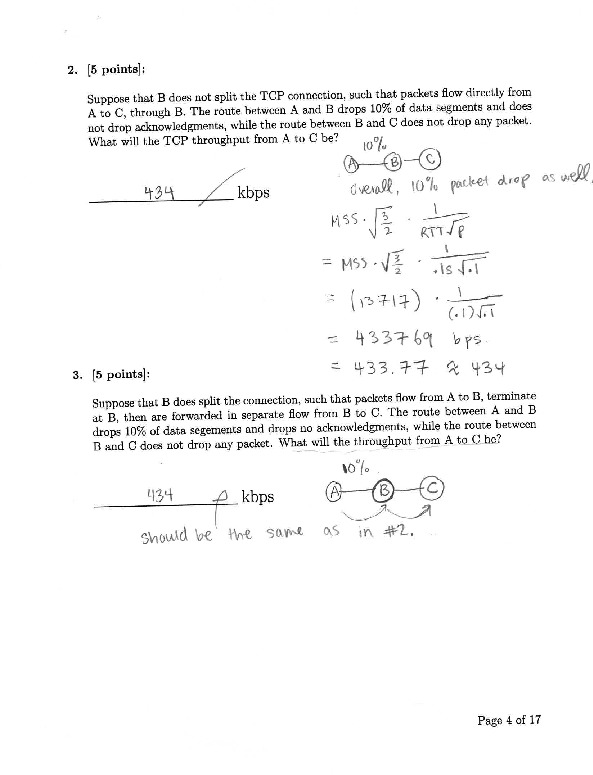 2. [5 points]:
Suppose that B does not split the TCP connection, such that packets flow directly from
A to C, through B. The route between A and B drops 10% of data segments and does
not drop acknowledgments, while the route between B and C does not drop any packet.
What will the TCP throughput from A to C be?
10%
A B C
434 kbps
Overall, 10% packet drop as well.
MSS · √3/2 · 1/RTT√p
= MSS · √3/2 · 1/.1s √.1
= (13717) · 1/(.1)√.1
= 433769 bps.
= 433.77 ≈ 434
3. [5 points]:
Suppose that B does split the connection, such that packets flow from A to B, terminate
at B, then are forwarded in separate flow from B to C. The route between A and B
drops 10% of data segements and drops no acknowledgments, while the route between
B and C does not drop any packet. What will the throughput from A to C be?
10%
A B C
434 kbps
should be the same as in #2.
Page 4 of 17